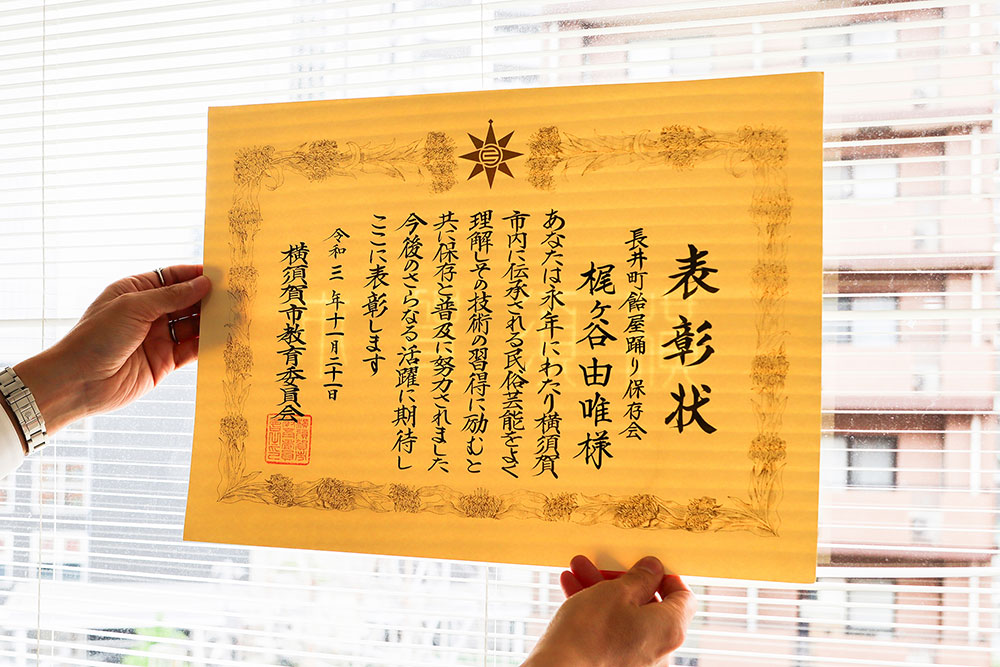 表彰状
長井町飴屋踊り保存会
梶ヶ谷由唯様
あなたは永年にわたり横須賀
市内に伝承される民俗芸能をよく
理解しその技術の習得に励むと
共に保存と普及に努力されました
今後のさらなる活躍に期待し
ここに表彰します
令和三年十一月二十一日
横須賀市教育委員会